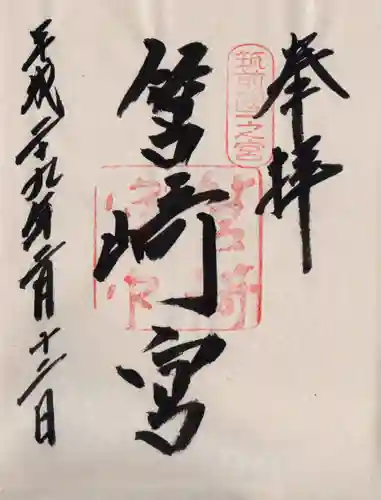 奉拝
筑前國一之宮
筥崎宮
平成二十九年二月十二日